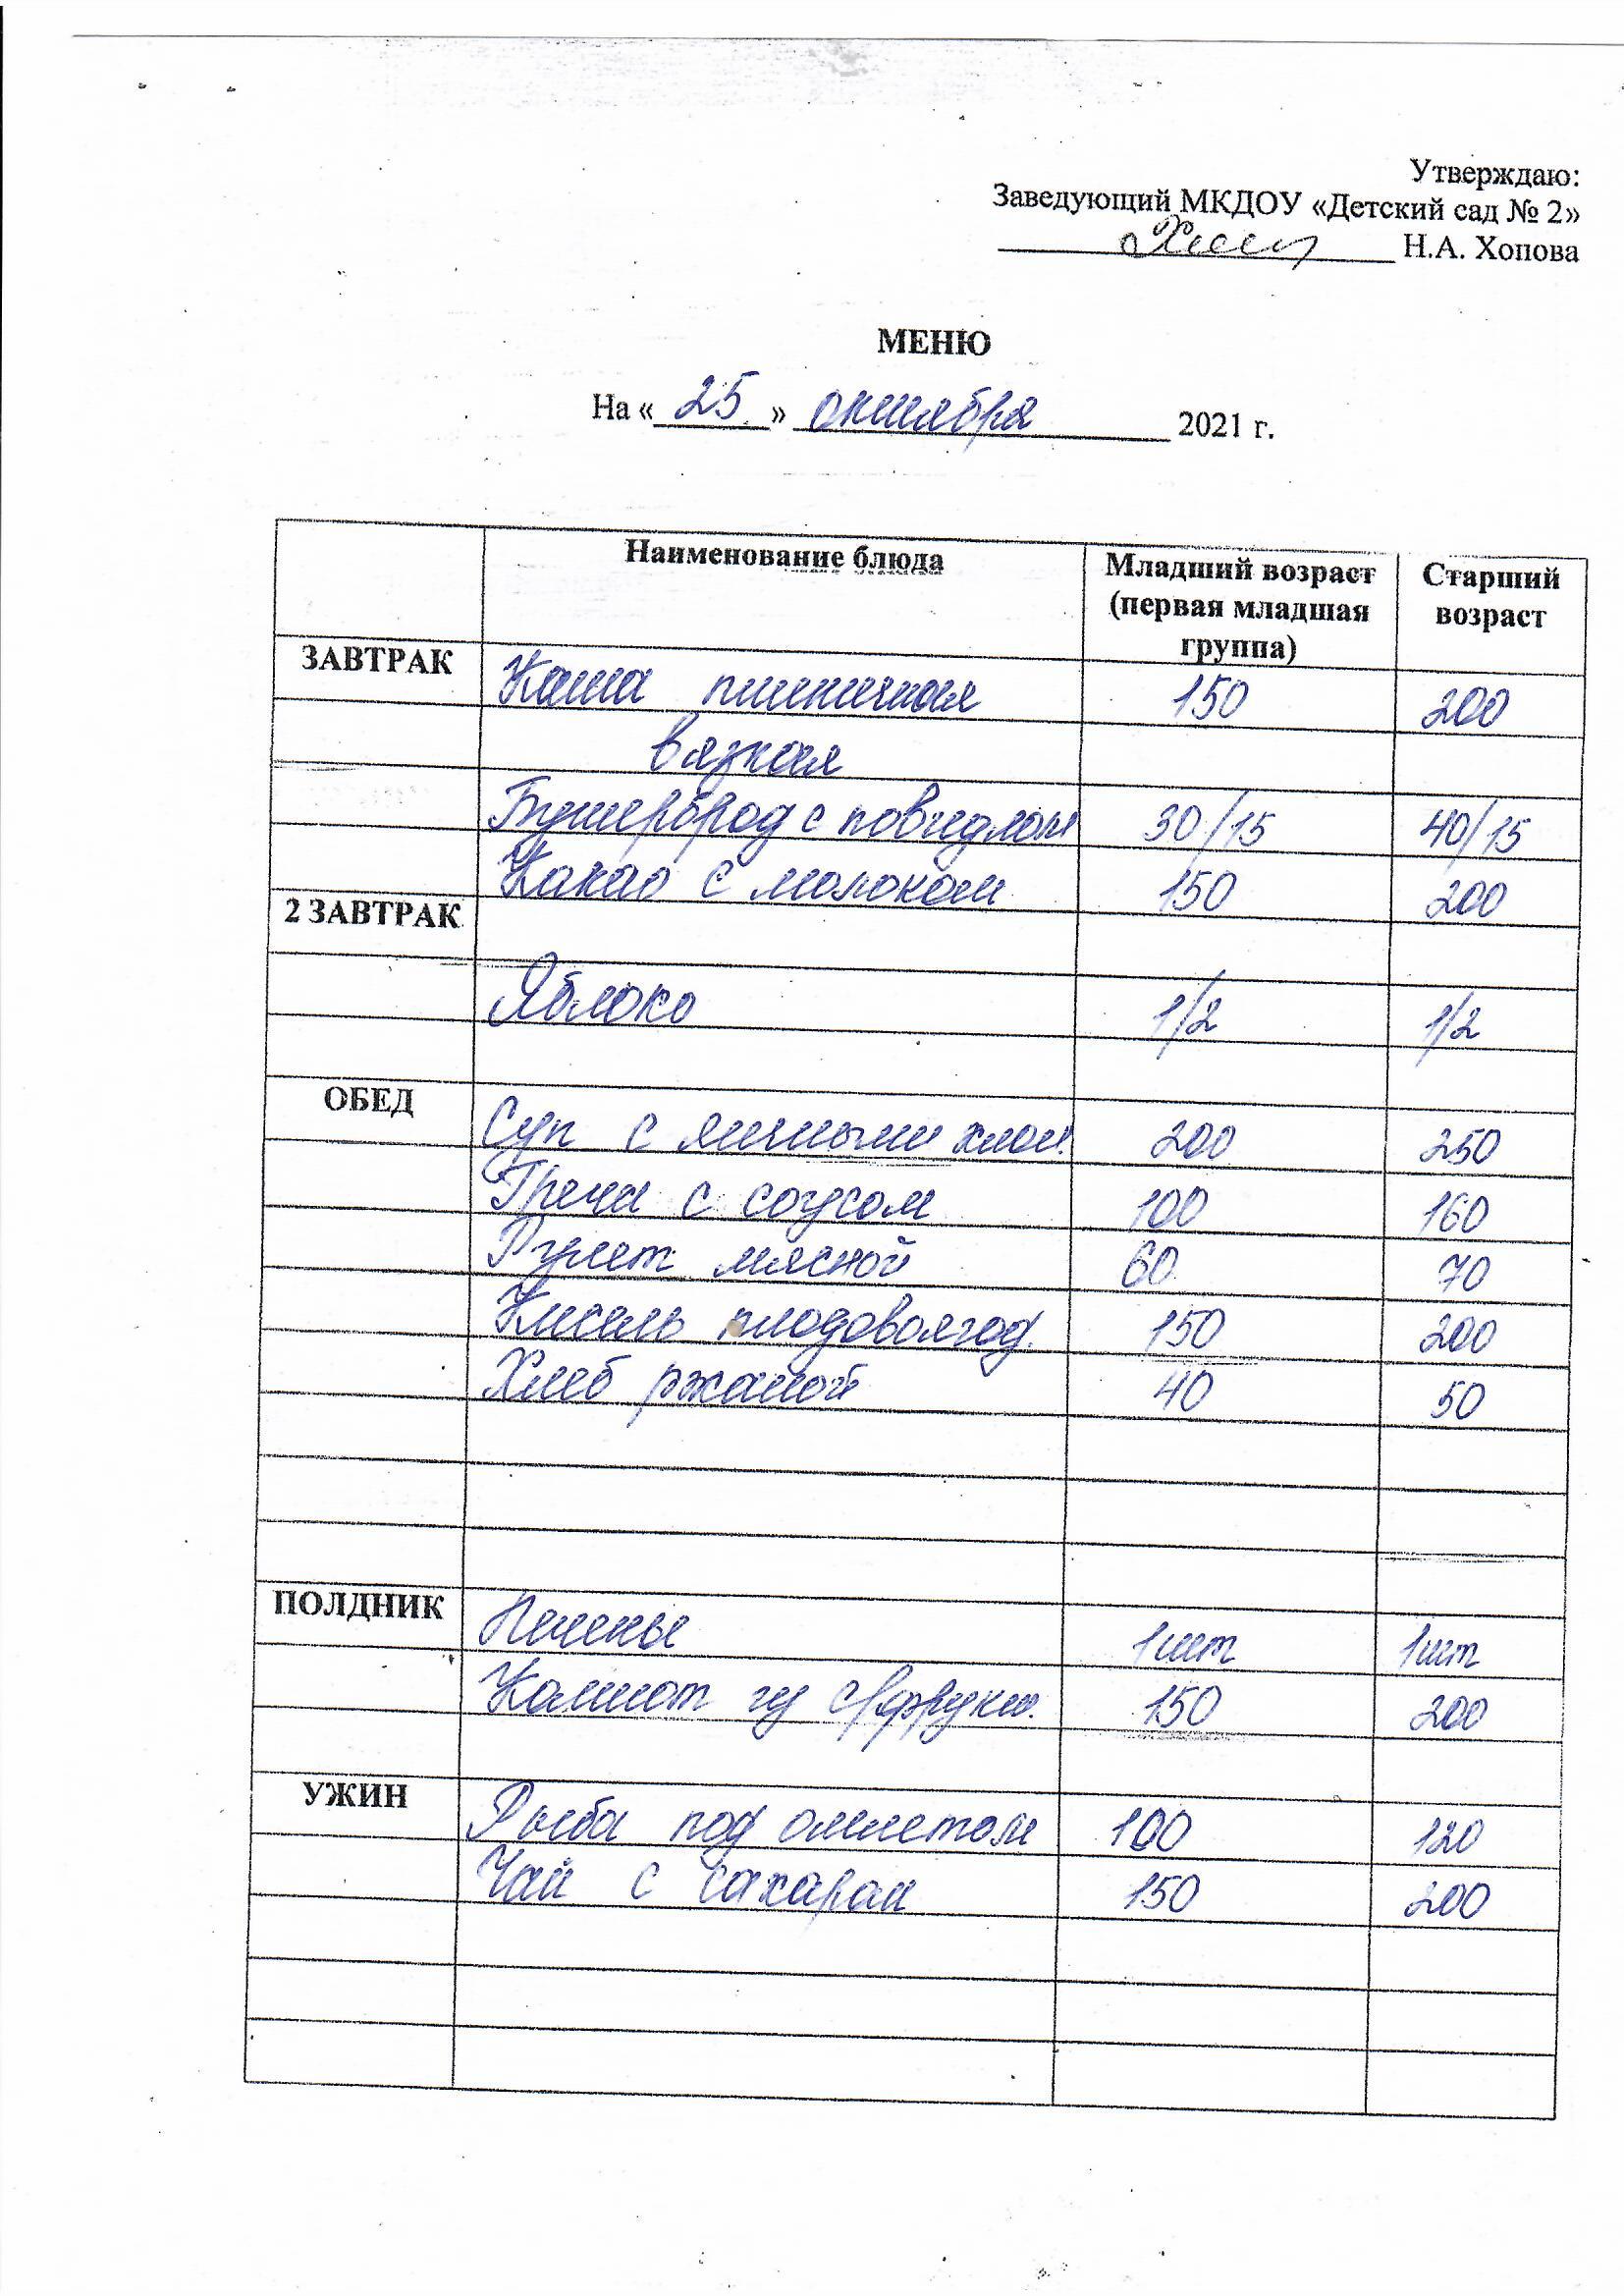 Утверждаю:
Заведующий МКДОУ «Детский сад № 2»
Н.А. Хопова
МЕНЮ
На « 25 » октября 2021 г.
Наименование блюда Младший возраст (первая младшая группа) Старший возраст
ЗАВТРАК Каша пшеничная 150 200
вязкая
Бутерброд с повидлом 30/15 40/15
Какао с молоком 150 200
2 ЗАВТРАК
Яблоко 1/2 1/2
ОБЕД Суп с яичными хлоп. 200 250
Греча с соусом 100 160
Рулет мясной 60 70
Кисель плодовоягод. 150 200
Хлеб ржаной 40 50
ПОЛДНИК Печенье 1шт 1шт
Компот из с/фрукт. 150 200
УЖИН Рыба под омлетом 100 120
Чай с сахаром 150 200